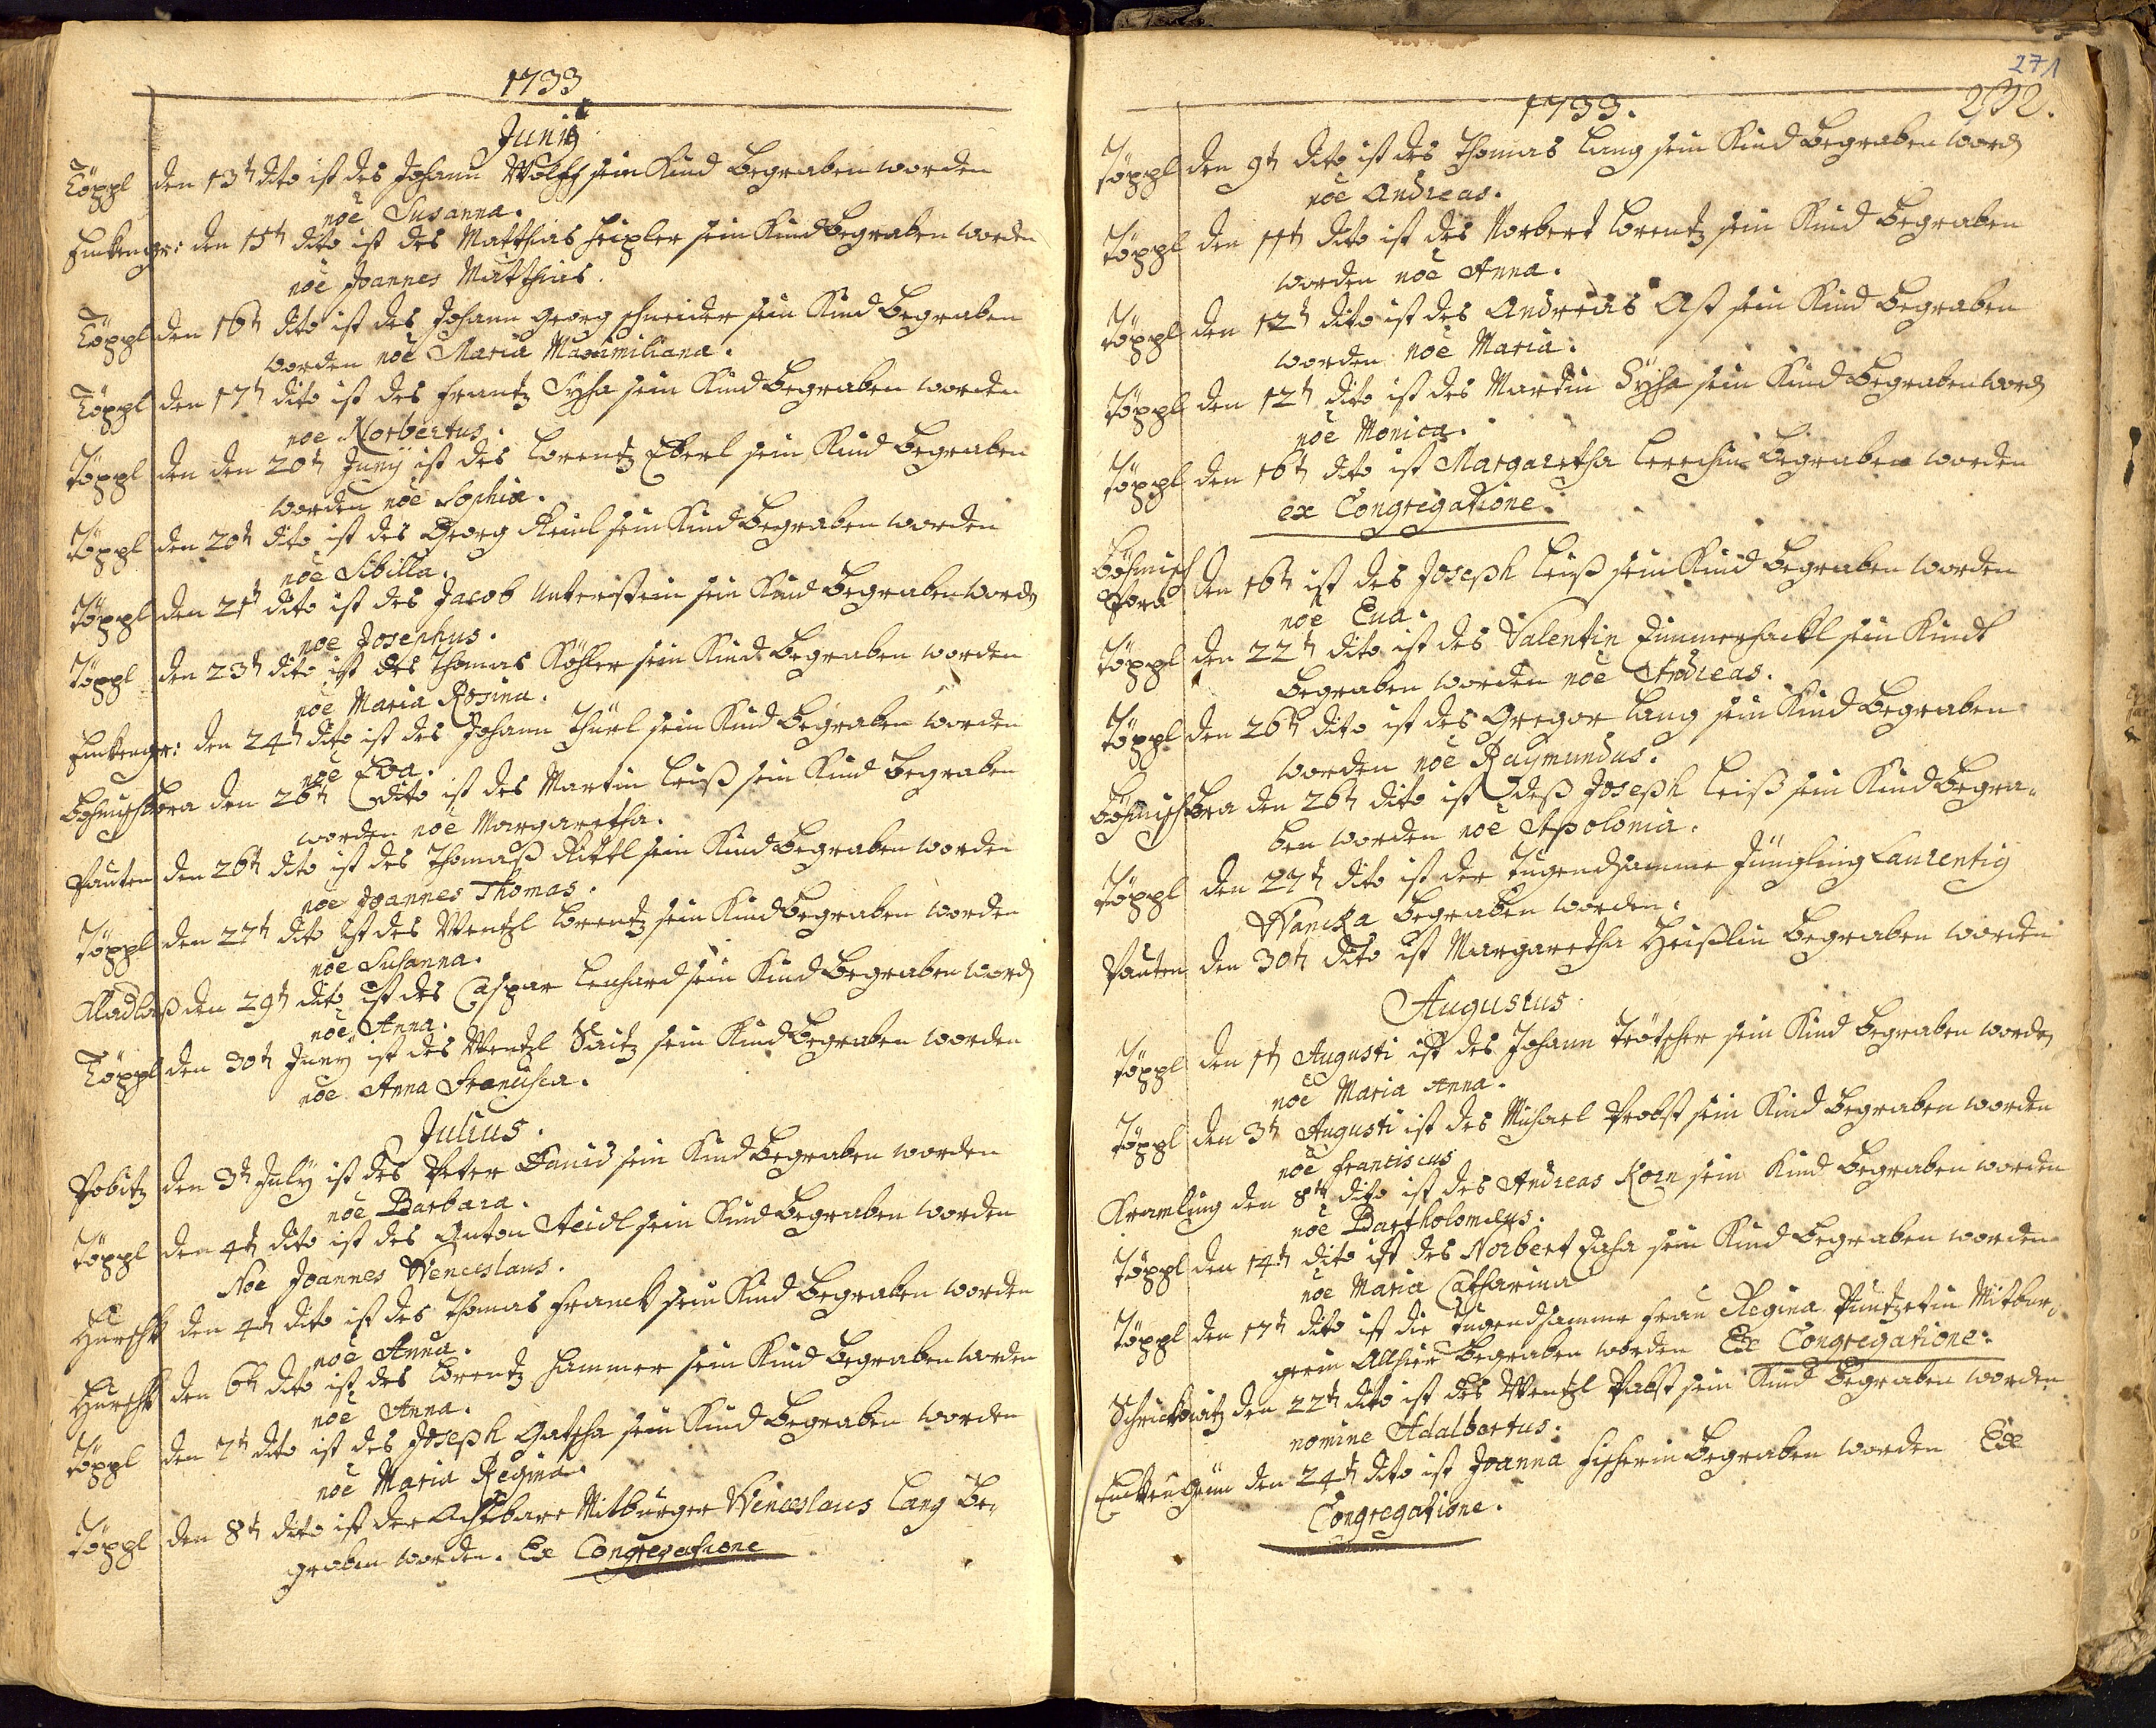 1733
Junij
Töppl den 13t dito ist des Johann Wolff sein Kind begraben worden
noe Susanna.
Enkengr: den 15t dito ist des Matthias Heipler sein Kind begraben worden
noe Joannes Matthias.
Töppl den 16t dito ist des Johann Georg Schneider sein Kind begraben
worden noe Maria Maximiliana.
Töppl den 17t dito ist des Frantz Syha sein Kind begraben worden
noe Norbertus.
Töppl den den 20t Junÿ ist des Lorentz Eberl sein Kind begraben
worden noe Sophia.
Töppl den 20t dito ist des Georg Heinl sein Kind begraben worden
noe Sibilla.
Töppl den 21t dito ist des Jacob Unterstein sein Kind begraben word
noe Josephus.
Töppl den 23t dito ist des Thomas Köhler sein Kind begraben worden
noe Maria Rosina.
Enkengr: den 24t dito ist des Johann Thürl sein Kind begraben worden
noe Eva.
Böhmischbora den 26t dito ist des Martin Leiß sein Kind begraben
worden noe Margaretha.
Pauten den 26t dito ist des Thomaß Kittl sein Kind begraben worden
noe Joannes Thomas.
Töppl den 27t dito ist des Wentzl Lorentz sein Kind begraben worden
noe Susanna.
Kladlaß den 29t dito ist des Caspar Lenhard sein Kind begraben word
noe Anna.
Töppl den 30t Junÿ ist des Wentzl Seitz sein Kind begraben worden
noe Anna Francisca.
Julius.
Pobitz den 3t Julÿ ist des Peter David sein Kind begraben worden
noe Barbara.
Töppl den 4t dito ist des Anton Heidl sein Kind begraben worden
Noe Joannes Wenceslaus.
Hurschk den 4t dito ist des Thomas Franck sein Kind begraben worden
noe Anna.
Hurschk den 6t dito ist des Lorentz Hammer sein Kind begraben worden
noe Anna.
Töppl den 7t dito ist des Joseph Gatscha sein Kind begraben worden
noe Maria Regina.
Töppl den 8t dito ist der Achtbare Mitburger Wenceslaus Lang be-
graben worden. Ex Congregatione
271
1733. 232.
Töppl den 9t dito ist des Thomas Lang sein Kind begraben word
noe Andreas.
Töppl den 11t dito ist des Norbert Lorentz sein Kind begraben
worden noe Anna.
Töppl den 12t dito ist des Andreas Ast sein Kind begraben
worden noe Maria.
Töppl den 12t dito ist des Martin Syha sein Kind begraben word
noe Monica.
Töppl den 16t dito ist Margaretha Lerchin begraben worden
ex Congregatione.
Böhmisch
Bora den 16t ist des Joseph Leiß sein Kind begraben worden
noe Eva.
Töppl den 22t dito ist des Valentin Zimmerhackl sein Kindt
begraben worden noe Andreas.
Töppl den 26t dito ist des Gregor Lang sein Kind begraben
worden noe Raymundus.
Böhmischbra den 26t dito ist deß Joseph Leiß sein Kind begra-
ben worden noe Apolonia.
Töppl den 27t dito ist der Tugendsamme Jüngling Laurentig
Wancka begraben worden.
Pauten den 30t dito ist Margaretha Heißlin begraben worden
Augustus
Töppl den 1t Augusti ist des Johann Trötscher sein Kind begraben worden
noe Maria Anna.
Töppl den 3t Augusti ist des Michael Probst sein Kind begraben worden
noe Franciscus
Kramling den 8t dito ist des Andreas Korn sein Kind begraben worden
noe Bartholomeus.
Töppl den 14t dito ist des Norbert Zaha sein Kind begraben worden
noe Maria Catharina
Töppl den 17t dito ist die Tugendsamme Frau Regina Puntzetin Mitbur-
gerin Allhier begraben worden Ex Congregatione.
Schrickowitz den 22t dito ist des Wentzl Pabst sein Kind begraben worden
nomine Adalbertus.
Enckengrün den 24t dito ist Joanna Fischerin begraben worden Ex
Congregatione.